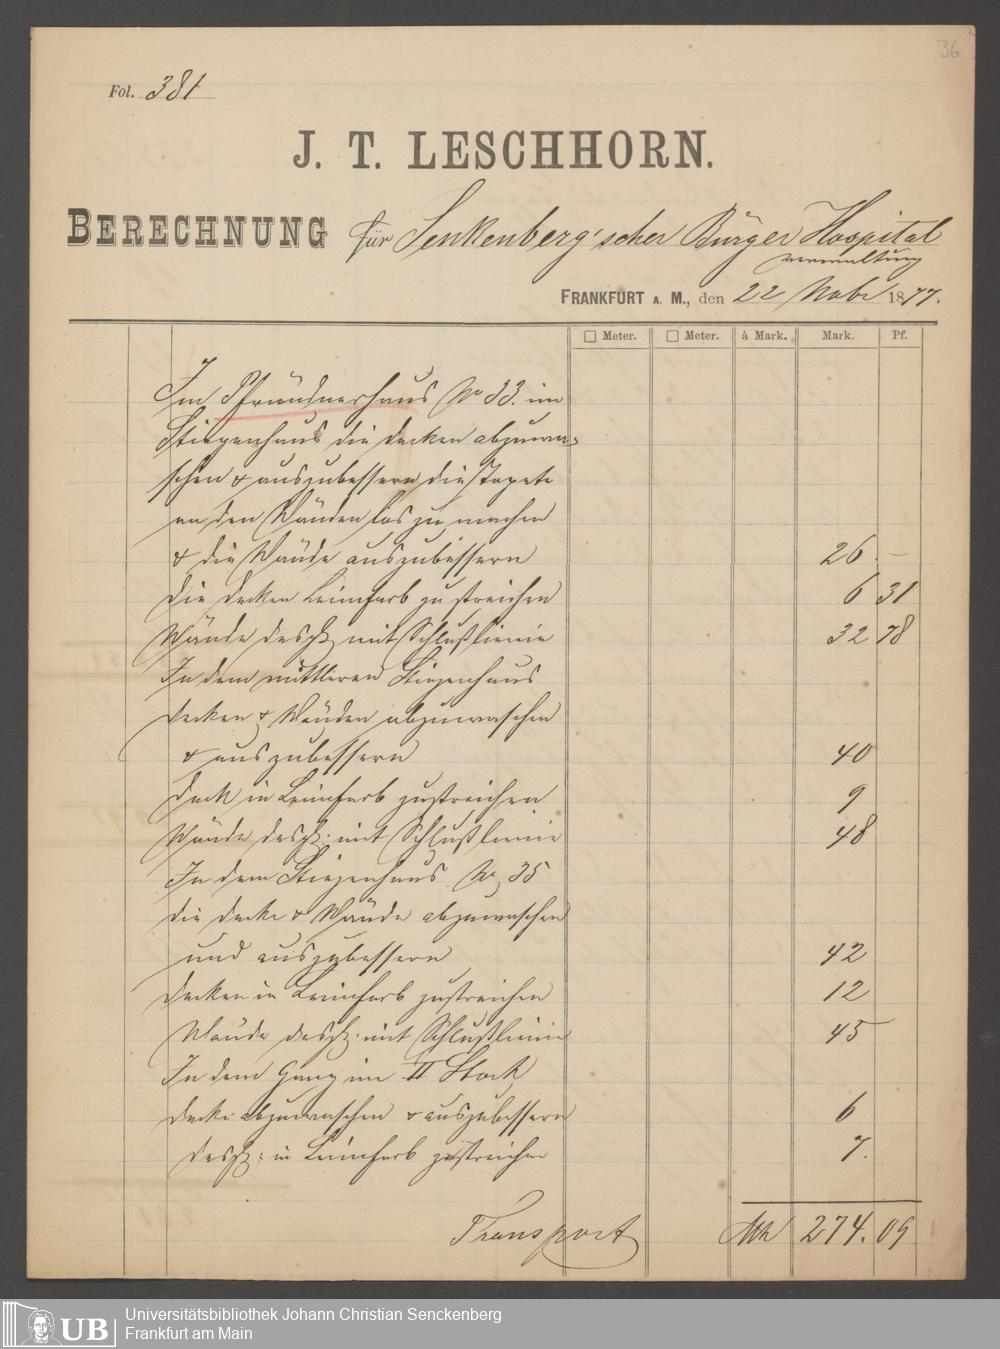 36
Fol. 381
J. T. LESCHHORN.
BERECHNUNG für Senkenberg'scher Bürger Hospital
verwaltung
FRANKFURT A. M., den 22 Nobr 1877.
□ Meter. □ Meter. à Mark. Mark. Pf.
Im Pfründnerhaus No 33. im
Stiegenhaus die Decken abzuwa-
schen & auszubessern die Tapete
an den Wänden los zu machen
& die Wände auszubessern 26. —
Die Decken Leimfarb zu streichen 6 31
Wände desgl mit Schlußlienie 32 78
In dem mittleren Stiegenhaus
Decken & Wänden abzuwaschen
& auszubessern 40
Deck in Leimfarb zu streichen 9
Wände desgl: mit Schlußlienie 48
In dem Stiegenhaus No 35
die Decke & Wände abzuwaschen
und auszubessern 42
Decken in Leimfarb zu streichen 12
Wände desgl: mit Schlußlienie 45
In dem Gang im II Stock
Decke abzuwaschen & auszubessern 6
desgl: in Leimfarb zu streichen 7.
Transport Mk 274. 09
UB
Universitätsbibliothek Johann Christian Senckenberg
Frankfurt am Main